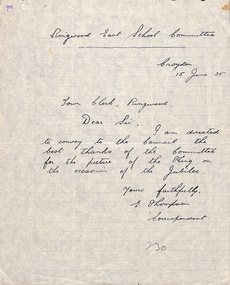 Ringwood East School Committee
Croydon
15 June 35
Town Clerk, Ringwood
Dear Sir,
I am directed
to convey to the Council the
best thanks of the Committee
for the picture of the King on
the occasion of the Jubilee.
Yours faithfully,
E Thompson
Correspondent